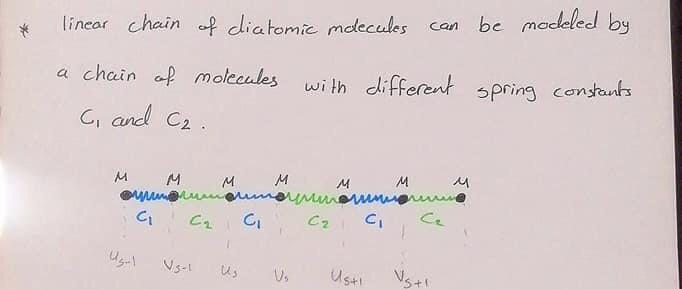 * linear chain of diatomic molecules can be modeled by
a chain of molecules with different spring constants
C₁ and C₂ .
M M M M M M M
C₁ C₂ C₁ C₂ C₁ C₂
Us-1 Vs-1 Us Vs Us+1 Vs+1